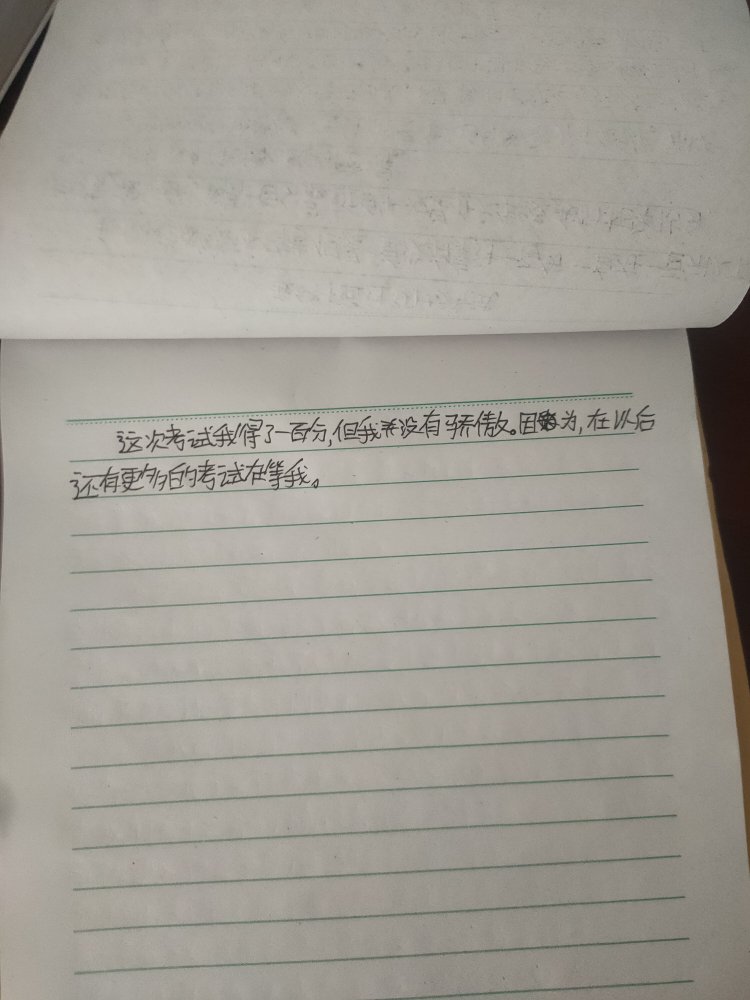 这次考试我得了一百分,但我并没有骄傲。因为,在以后
还有更多的考试在等我。